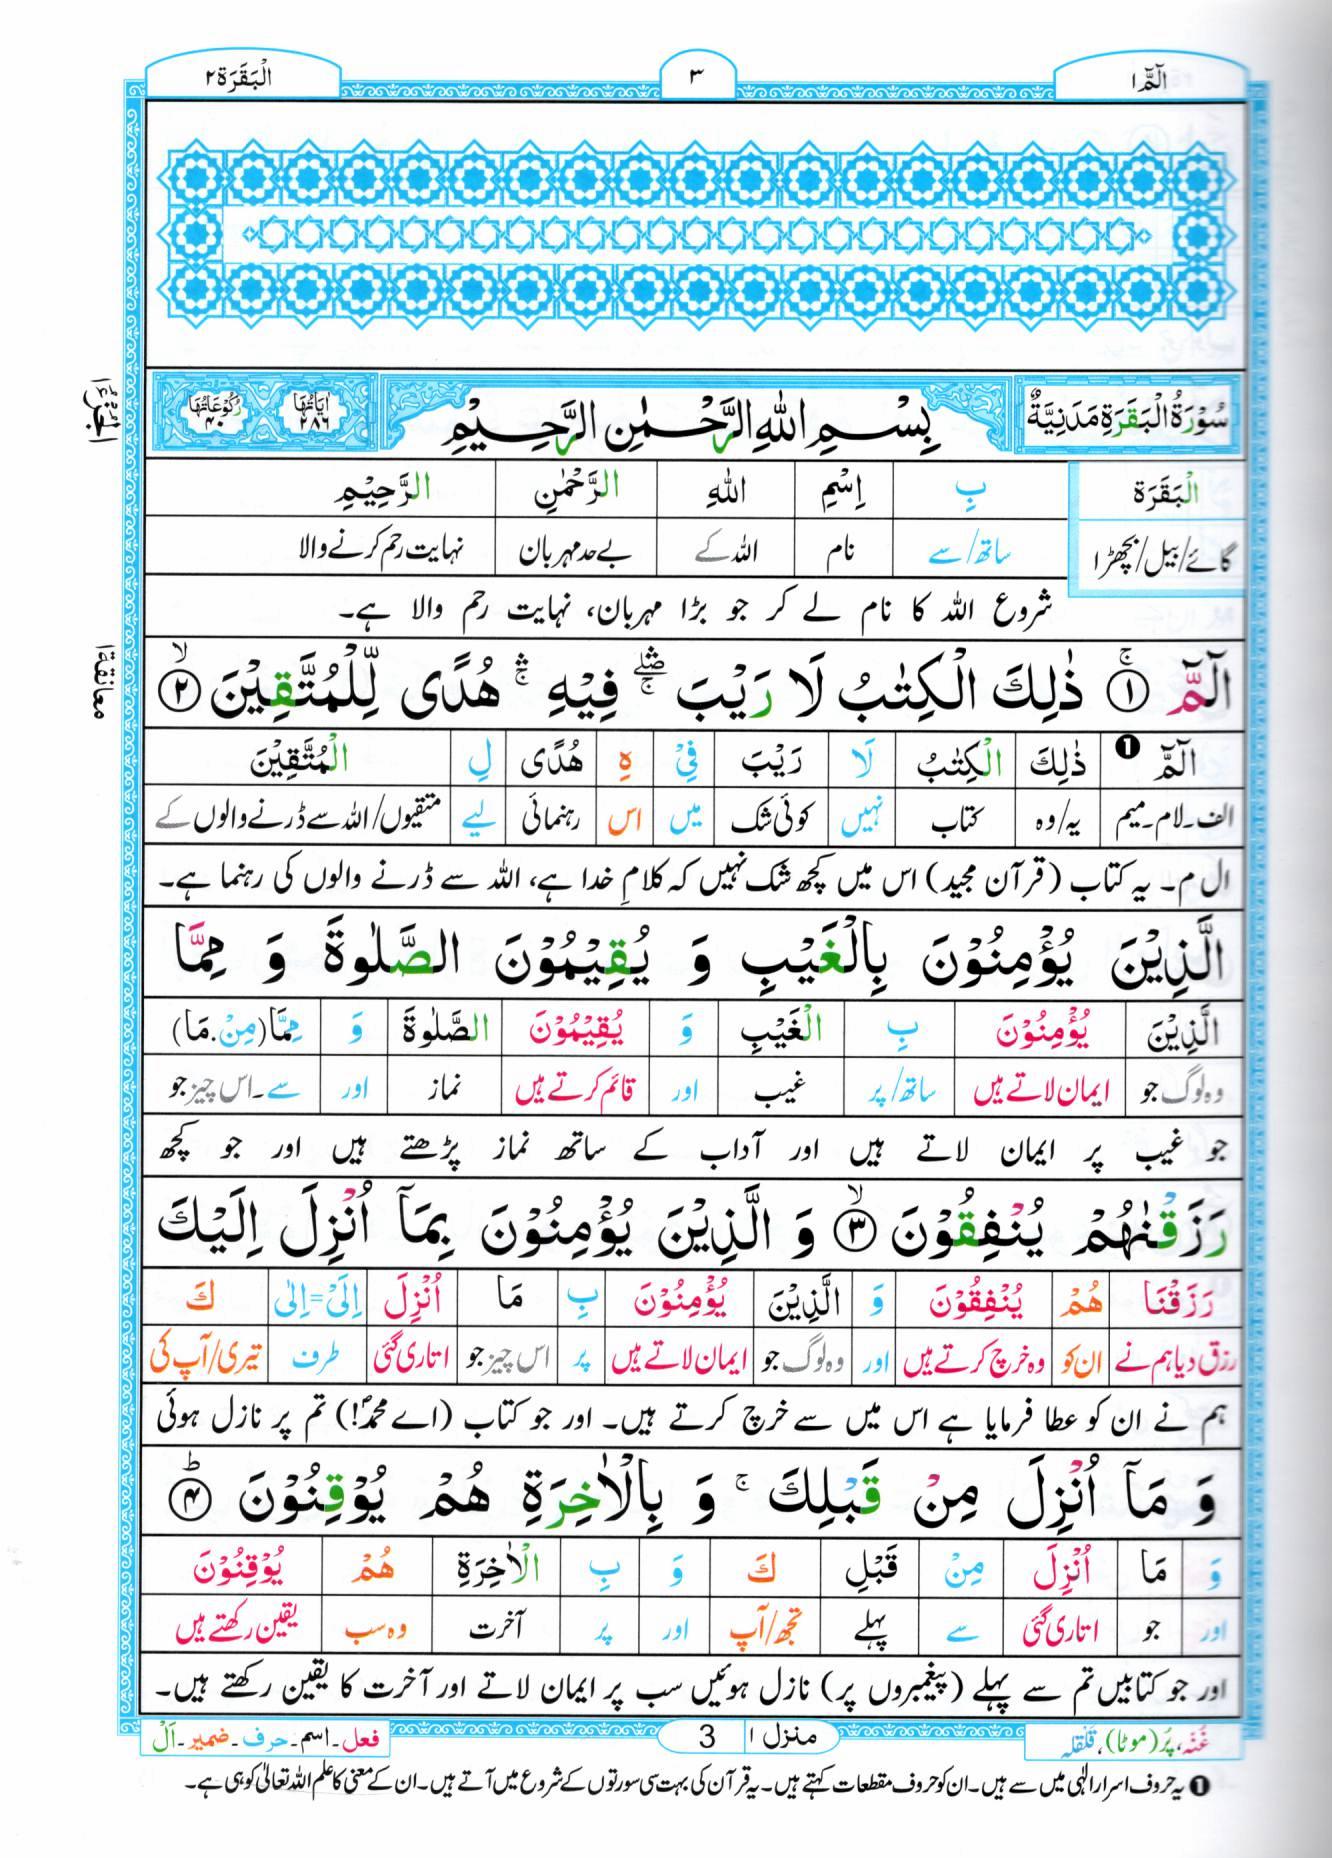 الٓمّٓ ۱
۳
الْبَقَرَة ۲
سُوْرَةُ الْبَقَرَةِ مَدَنِيَّةٌ
بِسْمِ اللهِ الرَّحْمٰنِ الرَّحِيْمِ
اٰيَاتُهَا ۲۸۶
رُكُوْعَاتُهَا ۴۰
الْبَقَرَة
بِ اِسْمِ اللهِ الرَّحْمٰنِ الرَّحِيْمِ
گائے/بیل/بچھڑا
ساتھ/سے نام اللہ کے بے حد مہربان نہایت رحم کرنے والا
شروع اللہ کا نام لے کر جو بڑا مہربان، نہایت رحم والا ہے۔
معانقة ۱
الٓمّٓ ۚ ﴿۱﴾ ذٰلِكَ الْكِتٰبُ لَا رَيْبَ ۛۖۚ فِيْهِ ۛۚ هُدًى لِّلْمُتَّقِيْنَ ۙ ﴿۲﴾
الٓمّٓ ❶ ذٰلِكَ الْكِتٰبُ لَا رَيْبَ فِيْ هِ هُدًى لِ الْمُتَّقِيْنَ
الف۔لام۔میم یہ/وہ کتاب نہیں کوئی شک میں اس رہنمائی لیے متقیوں/اللہ سے ڈرنے والوں کے
ال م۔ یہ کتاب (قرآن مجید) اس میں کچھ شک نہیں کہ کلامِ خدا ہے، اللہ سے ڈرنے والوں کی رہنما ہے۔
الَّذِيْنَ يُؤْمِنُوْنَ بِالْغَيْبِ وَ يُقِيْمُوْنَ الصَّلٰوةَ وَ مِمَّا
الَّذِيْنَ يُؤْمِنُوْنَ بِ الْغَيْبِ وَ يُقِيْمُوْنَ الصَّلٰوةَ وَ مِمَّا (مِنْ.مَا)
وہ لوگ جو ایمان لاتے ہیں ساتھ/پر غیب اور قائم کرتے ہیں نماز اور سے۔اس چیز جو
جو غیب پر ایمان لاتے ہیں اور آداب کے ساتھ نماز پڑھتے ہیں اور جو کچھ
رَزَقْنٰهُمْ يُنْفِقُوْنَ ۙ ﴿۳﴾ وَ الَّذِيْنَ يُؤْمِنُوْنَ بِمَاۤ اُنْزِلَ اِلَيْكَ
رَزَقْنَا هُمْ يُنْفِقُوْنَ وَ الَّذِيْنَ يُؤْمِنُوْنَ بِ مَا اُنْزِلَ اِلَيْ=اِلٰى كَ
رزق دیا ہم نے ان کو وہ خرچ کرتے ہیں اور وہ لوگ جو ایمان لاتے ہیں پر اس چیز جو اتاری گئی طرف تیری/آپ کی
ہم نے ان کو عطا فرمایا ہے اس میں سے خرچ کرتے ہیں۔ اور جو کتاب (اے محمدؐ!) تم پر نازل ہوئی
وَ مَاۤ اُنْزِلَ مِنْ قَبْلِكَ ۚ وَ بِالْاٰخِرَةِ هُمْ يُوْقِنُوْنَ ؕ ﴿۴﴾
وَ مَا اُنْزِلَ مِنْ قَبْلِ كَ وَ بِ الْاٰخِرَةِ هُمْ يُوْقِنُوْنَ
اور جو اتاری گئی سے پہلے تجھ/آپ اور پر آخرت وہ سب یقین رکھتے ہیں
اور جو کتابیں تم سے پہلے (پیغمبروں پر) نازل ہوئیں سب پر ایمان لاتے اور آخرت کا یقین رکھتے ہیں۔
غُنّہ، پُر (موٹا)، قلقلہ
منزل ۱
3
فعل۔اسم۔حرف۔ضمیر۔اَلْ
❶ یہ حروف اسرار الٰہی میں سے ہیں۔ان کو حروف مقطعات کہتے ہیں۔یہ قرآن کی بہت سی سورتوں کے شروع میں آتے ہیں۔ان کے معنی کا علم اللہ تعالیٰ کو ہی ہے۔